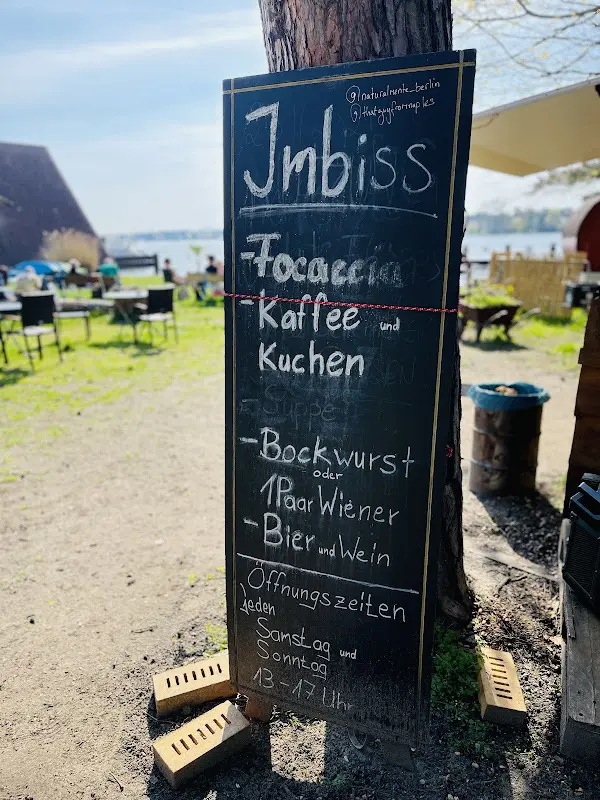 @naturalmente_berlin
@thatguyfromnaples
Imbiss
- Focaccia
- Kaffee und
Kuchen
- Suppe
- Bockwurst
oder
1 Paar Wiener
- Bier und Wein
Öffnungszeiten
Jeden
Samstag und
Sonntag
13 - 17 Uhr